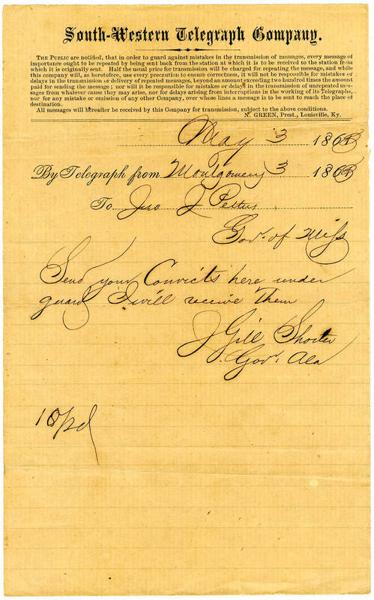 South-Western Telegraph Company.
THE PUBLIC are notified, that in order to guard against mistakes in the transmission of messages, every message of
importance ought to be repeated by being sent back from the station at which it is to be received to the station from
which it is originally sent. Half the usual price for transmission will be charged for repeating the message, and while
this company will, as heretofore, use every precaution to ensure correctness, it will not be responsible for mistakes or
delays in the transmission or delivery of repeated messages, beyond an amount exceeding two hundred times the amount
paid for sending the message; nor will it be responsible for mistakes or delays in the transmission of unrepeated mes-
sages from whatever cause they may arise, nor for delays arising from interruptions in the working of its Telegraphs,
nor for any mistake or omission of any other Company, over whose lines a message is to be sent to reach the place of
destination.
All messages will hereafter be received by this Company for transmission, subject to the above conditions.
N. GREEN, Prest., Louisville, Ky.
May 3 1863
By Telegraph from Montgomery 3 1863
To Jno J Pettus
Gov. of Miss
Send your Convicts here under
guard I will receive them
J Gill Shorter
Gov. Ala
10 pd